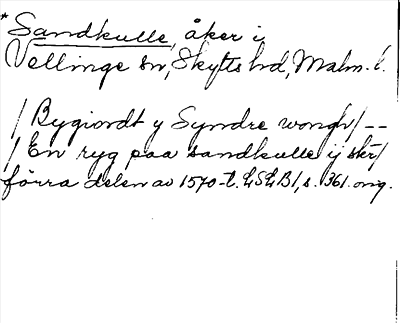 *Sandkulle, åker i
Vellinge sn, Skytts hd, Malm. l.
/Bygiordt y Syndre wongh/--
/En ryg paa sandkulle ij skr/
förra delen av 1570-t. LSLB1, s. 361. orig.